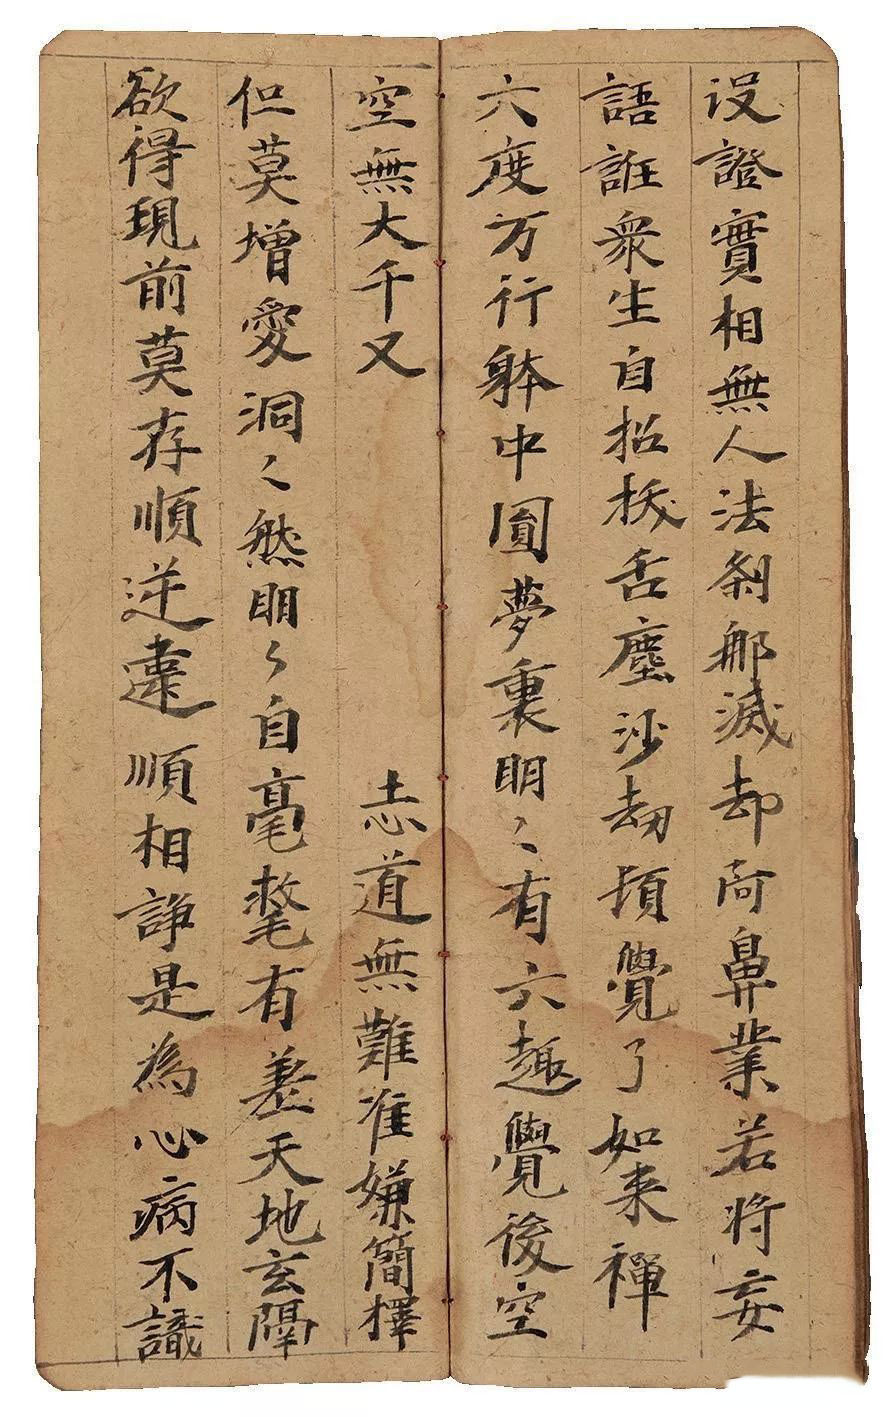 没證實相無人法刹那滅却阿鼻業若將妄
語誑衆生自招拔舌塵沙劫頓覺了如来禪
六度万行躰中圓夢裏明〻有六趣覺後空
空無大千又 志道無難准嫌簡擇
但莫增愛洞〻然明〻自毫氂有差天地玄隔
欲得現前莫存順逆違順相諍是為心病不識